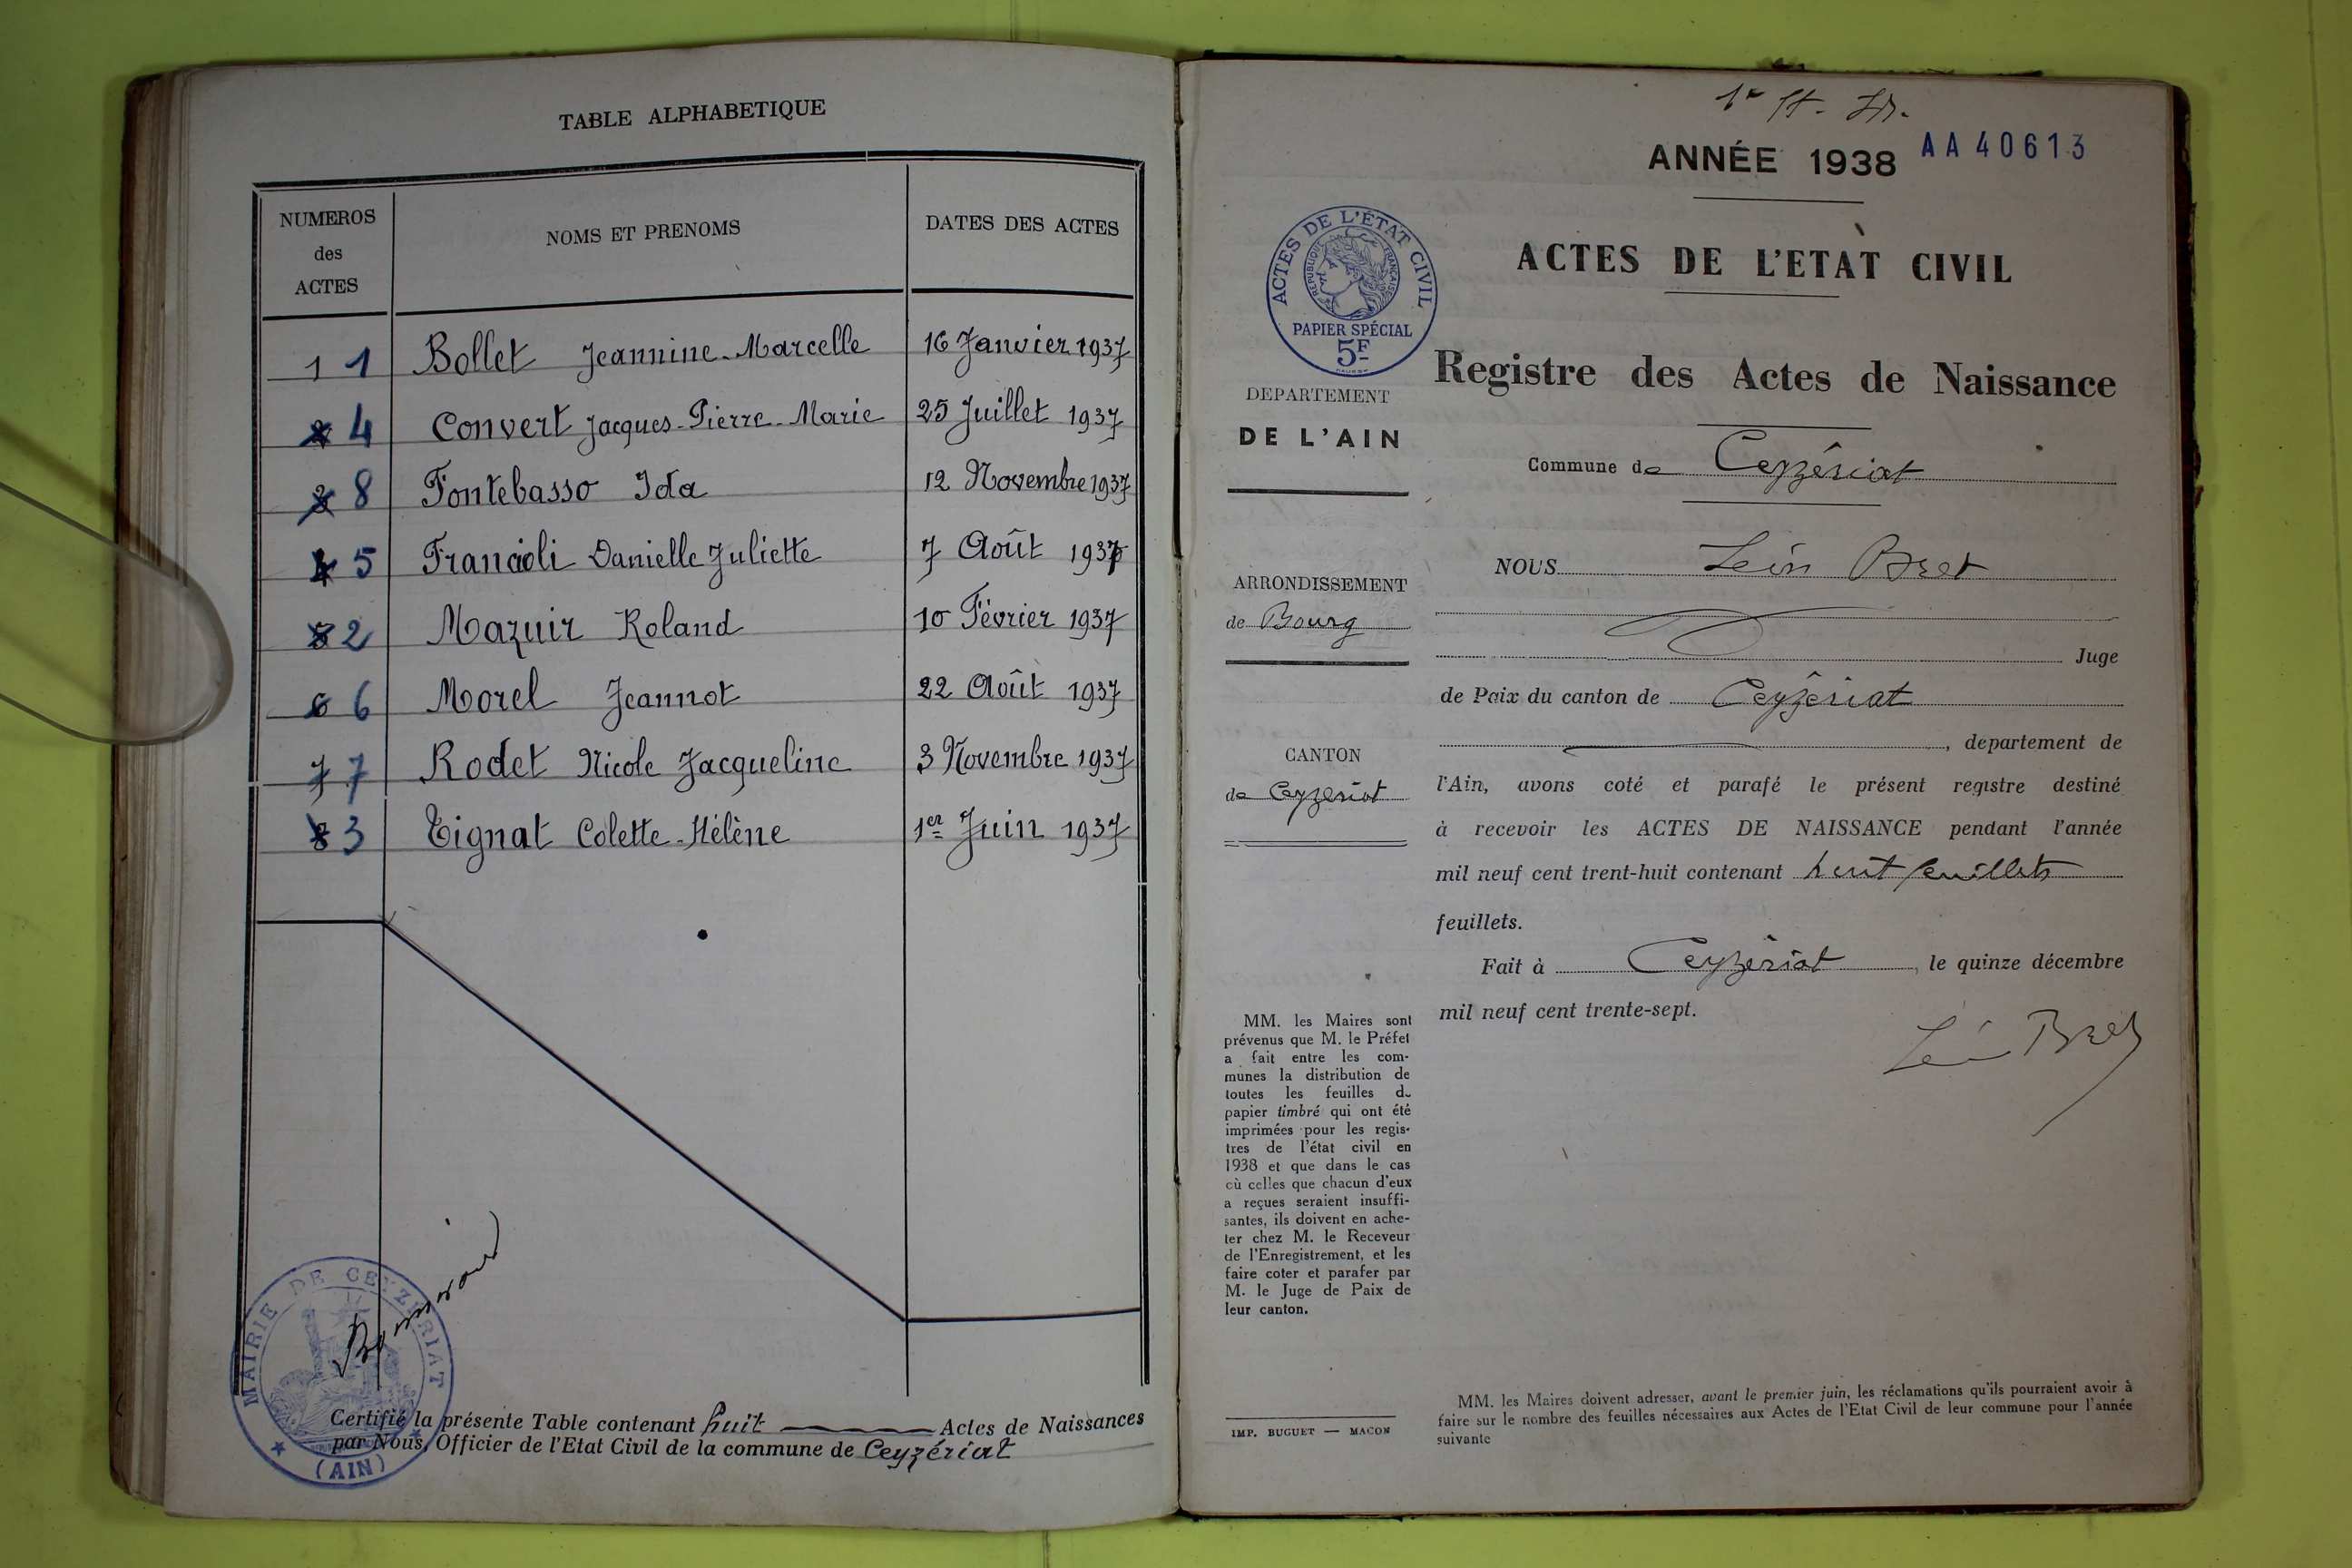 TABLE ALPHABETIQUE
NUMEROS
des
ACTES
NOMS ET PRENOMS
DATES DES ACTES
1 1 Bollet Jeannine-Marcelle 16 Janvier 1937
2 4 Convert Jacques-Pierre-Marie 25 Juillet 1937
3 8 Fontebasso Ida 12 Novembre 1937
4 5 Francioli Danielle Juliette 7 Août 1937
5 2 Mazuir Roland 10 Février 1937
6 6 Morel Jeannot 22 Août 1937
7 7 Rodet Nicole Jacqueline 3 Novembre 1937
8 3 Tignat Colette-Hélène 1er Juin 1937
MAIRIE DE CEYZERIAT
(AIN)
Certifié la présente Table contenant huit Actes de Naissances
par Nous, Officier de l'Etat Civil de la commune de Ceyzériat
ANNÉE 1938 AA40613
ACTES DE L'ÉTAT CIVIL
REPUBLIQUE FRANCAISE
PAPIER SPÉCIAL
5F
ACTES DE L'ETAT CIVIL
Registre des Actes de Naissance
DEPARTEMENT
DE L'AIN
Commune de Ceyzériat
ARRONDISSEMENT
de Bourg
CANTON
de Ceyzeriat
NOUS Léon Bret
Juge
de Paix du canton de Ceyzériat
, departement de
l'Ain, avons coté et parafé le présent registre destiné
à recevoir les ACTES DE NAISSANCE pendant l'année
mil neuf cent trent-huit contenant huit feuillets
feuillets.
Fait à Ceyzériat, le quinze décembre
mil neuf cent trente-sept.
Léon Bret
MM. les Maires sont
prévenus que M. le Préfet
a fait entre les com-
munes la distribution de
toutes les feuilles de
papier timbré qui ont été
imprimées pour les regis-
tres de l'état civil en
1938 et que dans le cas
où celles que chacun d'eux
a reçues seraient insuffi-
santes, ils doivent en ache-
ter chez M. le Receveur
de l'Enregistrement, et les
faire coter et parafer par
M. le Juge de Paix de
leur canton.
IMP. BUGUET — MACON
MM. les Maires doivent adresser, avant le premier juin, les réclamations qu'ils pourraient avoir à
faire sur le nombre des feuilles nécessaires aux Actes de l'Etat Civil de leur commune pour l'année
suivante